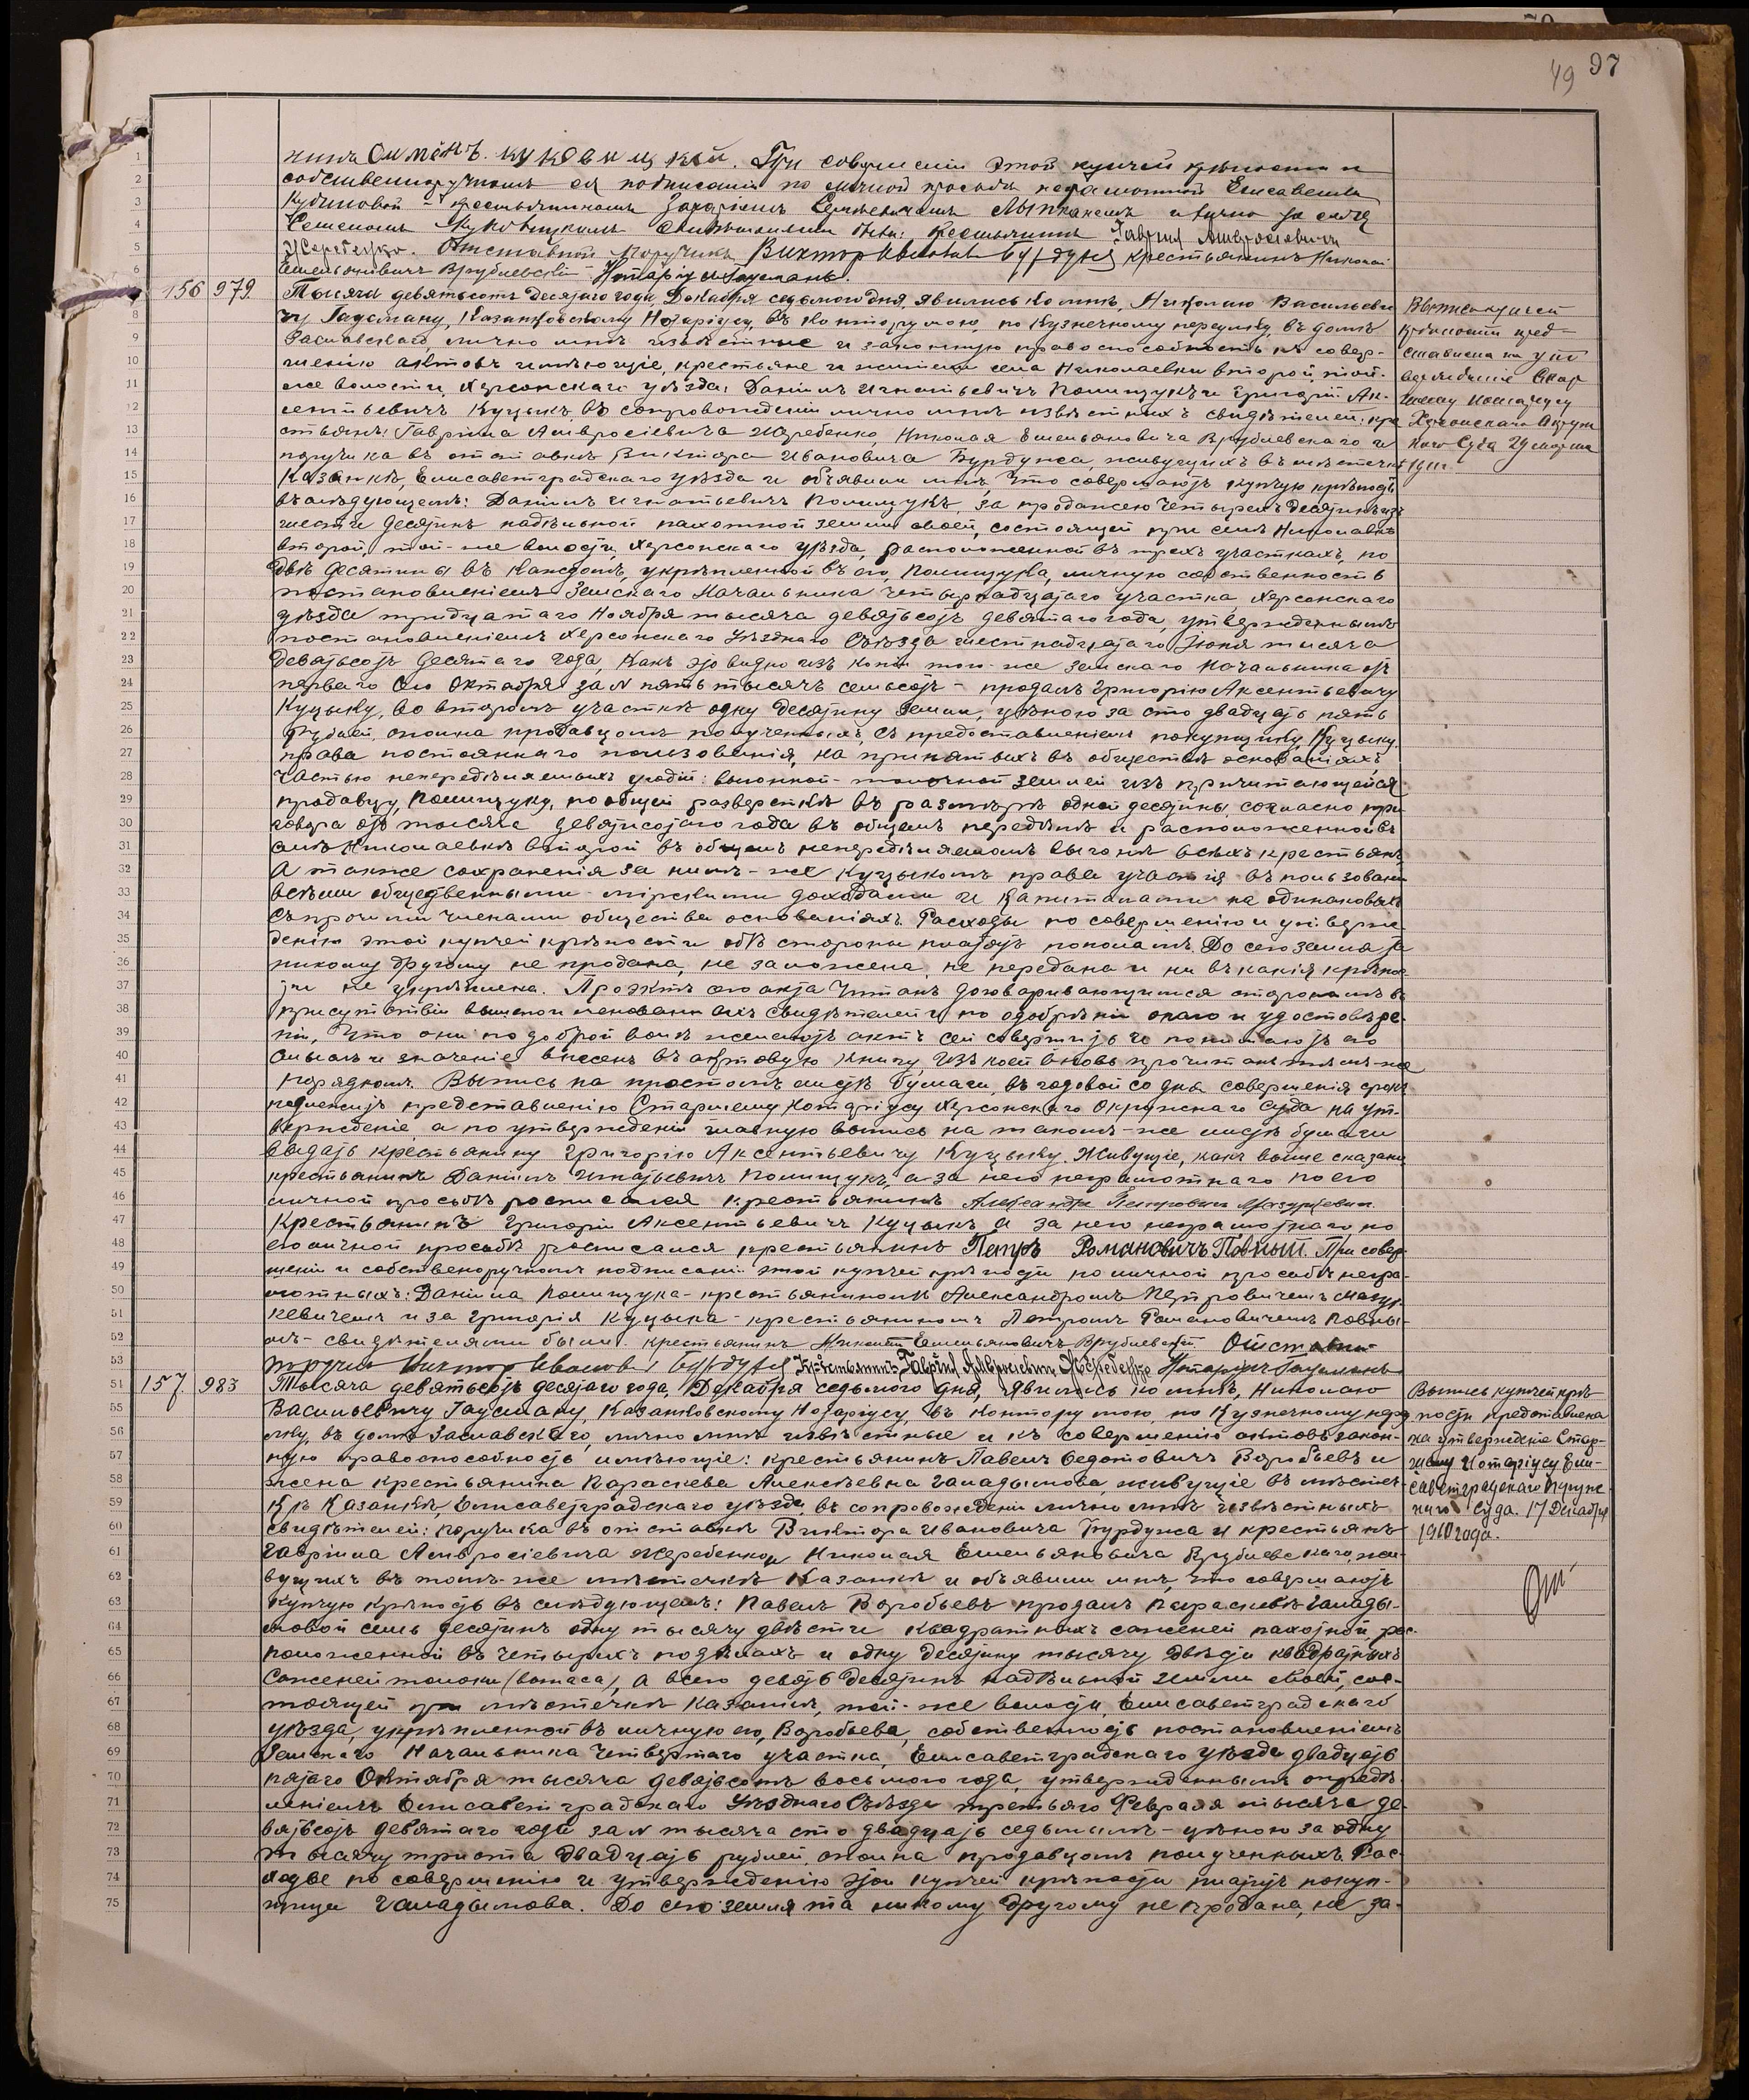 49 97
нинъ Симѣнъ Куковицкій. При совершеніи этой купчей крѣпости и
собственноручномъ ея подписаніи по личной просьбѣ неграмотной Елисаветы
крестьяниномъ Захаріемъ и лично за себя
Семеномъ свидѣтелями были: крестьянинъ Гавріилъ Амвросіевичъ
Жеребенко. Отставной Поручикъ Викторъ Ивановъ Бурдуна крестьянинъ Николай
Емельяновичъ Врублевскій Нотаріусъ Гаусманъ.
156 979 Тысяча девятьсотъ десятаго года, Декабря седьмого дня, явились ко мнѣ, Николаю Васильеви
чу Гаусману, Казанковскому Нотаріусу, въ контору мою, по Кузнечному переулку, въ домѣ
Заславскаго, лично мнѣ извѣстные и законную правоспособность къ совер-
шенію актовъ имѣющіе, крестьяне и жители села Николаевки второй, той-
же волости, Херсонскаго уѣзда: Даніилъ Игнатьевичъ Полищукъ и Григорій Ак-
сентьевичъ Куцыкъ, въ сопровожденіи лично мнѣ извѣстныхъ свидѣтелей: кре
стьянъ: Гавріила Амвросіевича Жеребенко, Николая Емельяновича Врублевскаго и
поручика въ отставкѣ Виктора Ивановича Бурдуна, живущихъ въ мѣстечкѣ
Казанкѣ, Елисаветградскаго уѣзда и объявили мнѣ, что совершаютъ купчую крѣпость
въ слѣдующемъ: Даніилъ Игнатьевичъ Полищукъ, за продажею четырехъ десятинъ изъ
шести десятинъ надѣльной пахотной земли своей, состоящей при селѣ Николаевкѣ
второй, той-же волости, Херсонскаго уѣзда, расположенной въ трехъ участкахъ, по
двѣ десятины въ каждомъ, укрѣпленной въ его, Полищука, личную собственность
постановленіемъ Земскаго Начальника четырнадцатаго участка, Херсонскаго
уѣзда тридцатаго Ноября тысяча девятьсотъ девятаго года, утвержденнымъ
постановленіемъ Херсонскаго Уѣзднаго Съѣзда шестнадцатаго Іюня тысяча
девятьсотъ десятаго года, какъ это видно изъ копіи того-же земскаго начальника отъ
перваго сего Октября за № пять тысячъ семьсотъ - продалъ Григорію Аксентьевичу
Куцыку, во второмъ участкѣ одну десятину земли, цѣною за сто двадцать пять
рублей, сполна продавцомъ полученныхъ, съ предоставленіемъ покупщику, Куцыку
права постояннаго пользованія, на принятыхъ въ обществѣ основаніяхъ,
частью непередѣляемыхъ угодій: выгонной-толочной землей изъ причитающейся
продавцу, Полищуку, по общей разверсткѣ въ размѣрѣ одной десятины согласно при
говора отъ тысяча девятисотаго года въ общемъ передѣлѣ и расположенной въ
селѣ Николаевкѣ второй въ общемъ непередѣляемомъ выгонѣ всѣхъ крестьянъ,
а также сохраненія за нимъ-же Куцыкомъ права участія въ пользованіи
всѣми общественными-мірскими доходами и капиталами на одинаковыхъ
съ прочими членами общества основаніяхъ. Расходы по совершенію и утверж
денію этой купчей крѣпости обѣ стороны платятъ пополамъ. До сего земля та
никому другому не продана, не заложена, не передана и ни въ какія крѣпос
ти не укрѣплена. Проэктъ сего акта читанъ договаривающимся сторонамъ въ
присутствіи вышепоименованныхъ свидѣтелей и по одобреніи онаго и удостовѣре-
ніи, что они по доброй волѣ желаютъ актъ сей совершить и понимаютъ его
смыслъ и значеніе внесенъ въ актовую книгу, изъ коей вновь прочитанъ тѣмъ-же
порядкомъ. Выпись на простомъ листѣ бумаги, въ годовой со дня совершенія срокъ
подлежитъ представленію Старшему Нотаріусу Херсонскаго Окружнаго Суда на ут-
вержденіе, а по утвержденіи главную выпись на такомъ-же листѣ бумаги
выдать крестьянину Григорію Аксентьевичу Куцыку. Живущіе, какъ выше сказано
крестьянинъ Даніилъ Игнатьевичъ Полищукъ, а за него неграмотнаго по его
личной просьбѣ росписался крестьянинъ Александръ Петровичъ Мазуркевичъ.
Крестьянинъ Григорій Аксентьевичъ Куцыкъ, а за него неграмотнаго по
его личной просьбѣ росписался крестьянинъ Петръ Романовичъ Повный. При совер-
шеніи и собственоручномъ подписаніи этой купчей крѣпости по личной просьбѣ негра-
мотныхъ: Даніила Полищука - крестьяниномъ Александромъ Петровичемъ Мазур-
кевичемъ и за Григорія Куцыка - крестьяниномъ Петромъ Романовичемъ Повны-
мъ - свидѣтелями были: крестьянинъ Николай Емельяновичъ Врублевскій Отставн.
поручикъ Викторъ Ивановъ Бурдуна Крестьянинъ Гавріилъ Амвросіевичъ Жеребенко Нотаріусъ Гаусманъ
Выпись купчей
крѣпости пред-
ставлена на утв
вержденіе Стар
шему Нотаріусу
Херсонскаго Окруж
наго Суда 29 марта
1911.
157 983 Тысяча девятьсотъ десятаго года, Декабря седьмого дня, явились ко мнѣ, Николаю
Васильевичу Гаусману, Казанковскому Нотаріусу, въ контору мою, по Кузнечному пере
улку, въ домѣ Заславскаго, лично мнѣ извѣстные и къ совершенію актовъ закон-
ную правоспособность имѣющіе: крестьянинъ Павелъ Федотовичъ Воробьевъ и
жена крестьянина Параскева Алексѣевна Галадымова, живущіе въ мѣстеч-
кѣ Казанкѣ, Елисаветградскаго уѣзда, въ сопровожденіи лично мнѣ извѣстныхъ
свидѣтелей: поручика въ отставкѣ Виктора Ивановича Бурдуна и крестьянъ
Гавріила Амвросіевича Жеребенко и Николая Емельяновича Врублевскаго, жи-
вущихъ въ томъ-же мѣстечкѣ Казанкѣ и объявили мнѣ, что совершаютъ
купчую крѣпость въ слѣдующемъ: Павелъ Воробьевъ продалъ Параскевѣ Галады-
мовой семь десятинъ одну тысячу двѣсти квадратныхъ саженей пахотной, рас-
положенной въ четырехъ подѣлахъ и одну десятину тысячу двѣсти квадратныхъ
саженей толоки (выпаса), а всего девять десятинъ надѣльной земли своей, сос-
тоящей при мѣстечкѣ Казанкѣ, той-же волости, Елисаветградскаго
уѣзда, укрѣпленной въ личную его, Воробьева, собственность постановленіемъ
Земскаго Начальника четвертаго участка, Елисаветградскаго уѣзда двадцать
пятаго Октября тысяча девятьсотъ восьмого года, утвержденнымъ опредѣ-
леніемъ Елисаветградскаго Уѣзднаго Съѣзда третьяго Февраля тысяча де-
вятьсотъ девятаго года за № тысяча сто двадцать седьмымъ - цѣною за одну
тысячу триста двадцать рублей, сполна продавцомъ полученныхъ. Рас-
ходы по совершенію и утвержденію этой купчей крѣпости платитъ покуп-
щица Галадымова. До сего земля та никому другому не продана, не за-
Выпись купчей крѣ-
пости представлена
на утвержденіе Стар-
шему Нотаріусу Ели-
саветградскаго Окруж-
наго Суда. 17 Декабря
1910 года.